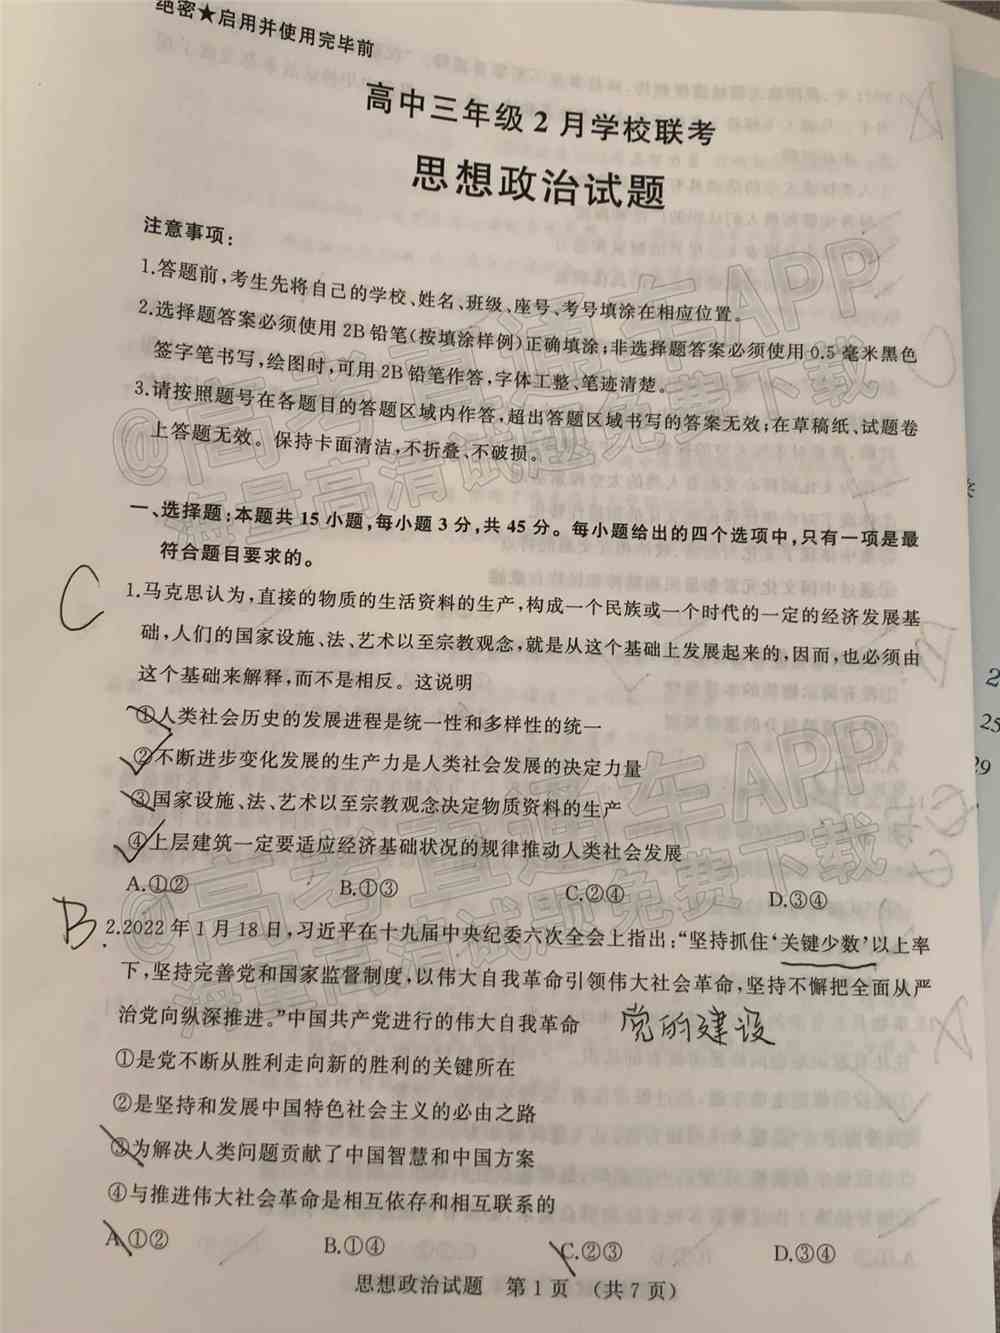 绝密★启用并使用完毕前
高中三年级2月学校联考
思想政治试题
注意事项：
1.答题前，考生先将自己的学校、姓名、班级、座号、考号填涂在相应位置。
2.选择题答案必须使用2B铅笔(按填涂样例)正确填涂；非选择题答案必须使用0.5毫米黑色
签字笔书写，绘图时，可用2B铅笔作答，字体工整、笔迹清楚。
3.请按照题号在各题目的答题区域内作答，超出答题区域书写的答案无效；在草稿纸、试题卷
上答题无效。保持卡面清洁，不折叠、不破损。
@高考直通车APP
海量高清试题免费下载
一、选择题：本题共15小题，每小题3分，共45分。每小题给出的四个选项中，只有一项是最
符合题目要求的。
C
1.马克思认为，直接的物质的生活资料的生产，构成一个民族或一个时代的一定的经济发展基
础，人们的国家设施、法、艺术以至宗教观念，就是从这个基础上发展起来的，因而，也必须由
这个基础来解释，而不是相反。这说明
①人类社会历史的发展进程是统一性和多样性的统一
②不断进步变化发展的生产力是人类社会发展的决定力量
③国家设施、法、艺术以至宗教观念决定物质资料的生产
④上层建筑一定要适应经济基础状况的规律推动人类社会发展
A.①② B.①③ C.②④ D.③④
@高考直通车APP
海量高清试题免费下载
B
2.2022年1月18日，习近平在十九届中央纪委六次全会上指出：“坚持抓住‘关键少数’以上率
下，坚持完善党和国家监督制度，以伟大自我革命引领伟大社会革命，坚持不懈把全面从严
治党向纵深推进。”中国共产党进行的伟大自我革命 党的建设
①是党不断从胜利走向新的胜利的关键所在
②是坚持和发展中国特色社会主义的必由之路
③为解决人类问题贡献了中国智慧和中国方案
④与推进伟大社会革命是相互依存和相互联系的
A.①② B.①④ C.②③ D.③④
思想政治试题 第1页 (共7页)
2
25
29